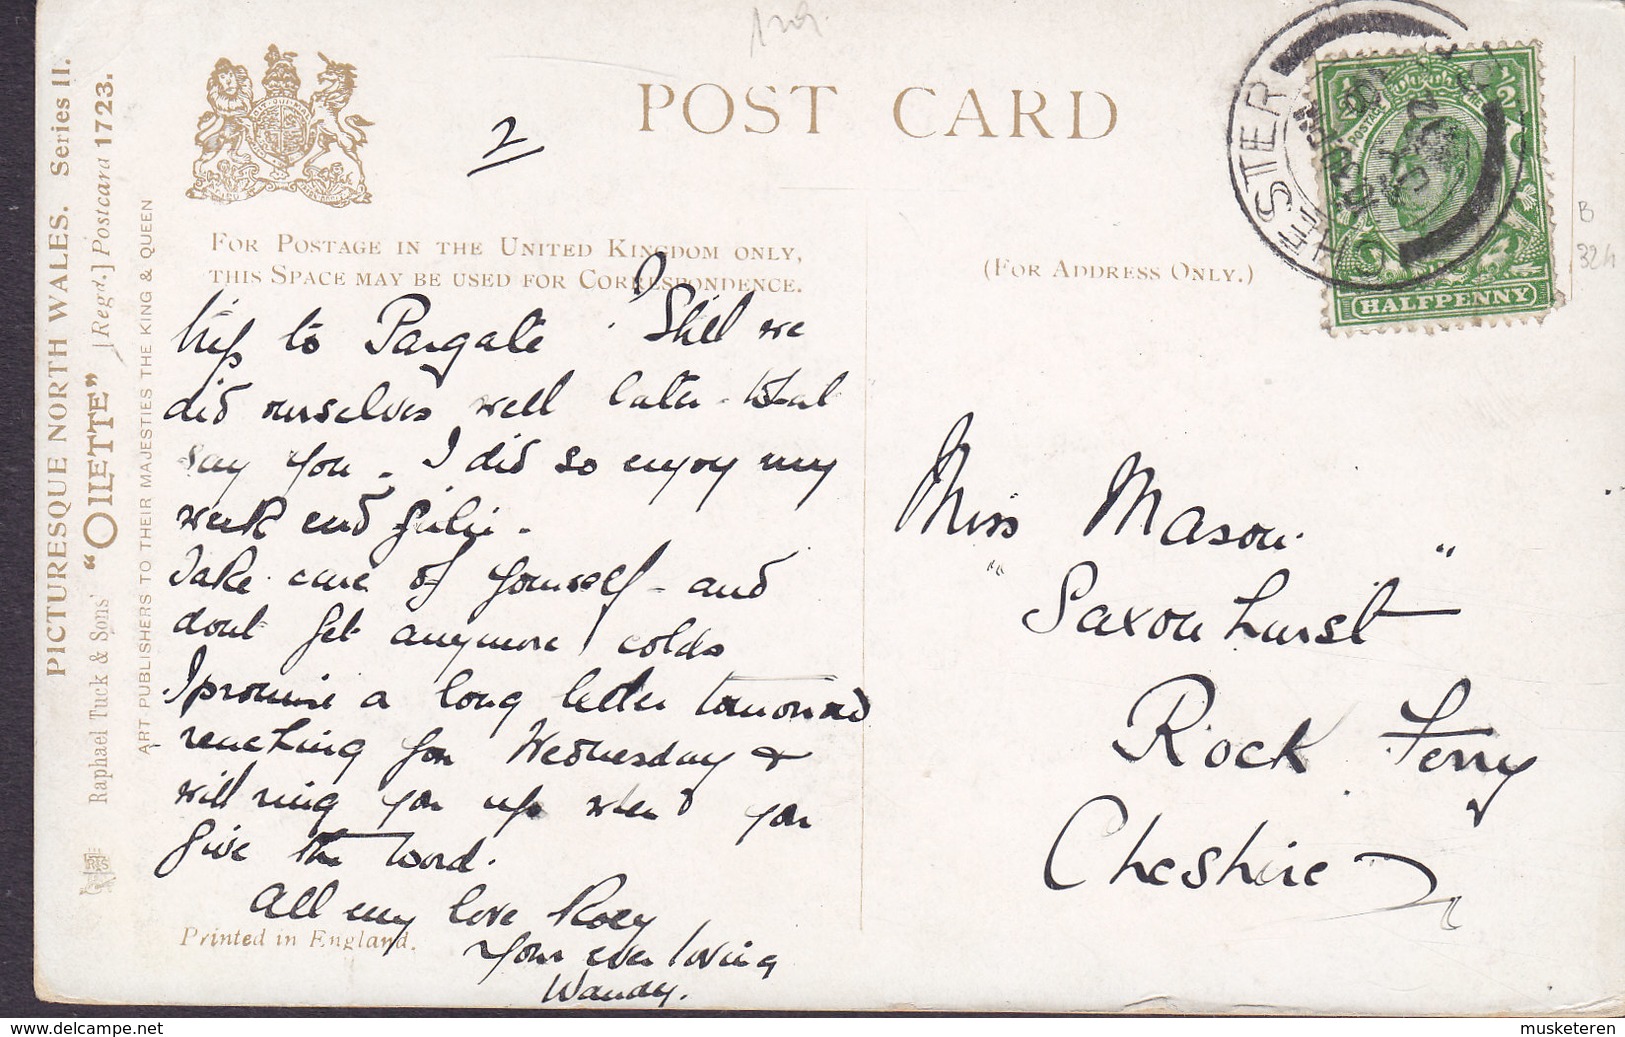 PICTURESQUE NORTH WALES. Series II.
Raphael Tuck & Sons' "OILETTE" [Regd.] Postcard 1723.
ART PUBLISHERS TO THEIR MAJESTIES THE KING & QUEEN
2
POST CARD
FOR POSTAGE IN THE UNITED KINGDOM ONLY,
THIS SPACE MAY BE USED FOR CORRESPONDENCE.
(FOR ADDRESS ONLY.)
CHESTER
POSTAGE
HALFPENNY
B
324
trip to Pargate. Still we
did ourselves well later - What
say you. I did so enjoy my
week end
Take care of yourself - and
dont get anymore colds
I promise a long letter tomorrow
reaching you Wednesday &
will ring you up when you
give the word.
All my love
Your ever loving
Wandy.
Miss Mason.
"Saxonhurst"
Rock Ferry
Cheshire
Printed in England.
www.delcampe.net
musketeren